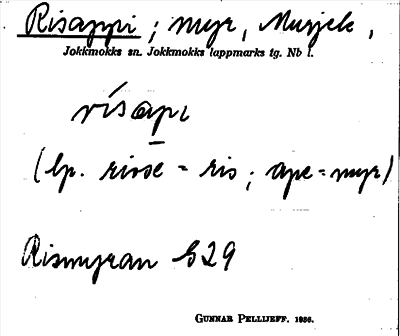 Risappi ; myr, Murjek,
Jokkmokks sn. Jokkmokks lappmarks tg. Nb l.
rísapi
(lp. risse = ris ; ape = myr)
Rismyran S29
GUNNAR PELLIJEFF. 1936.